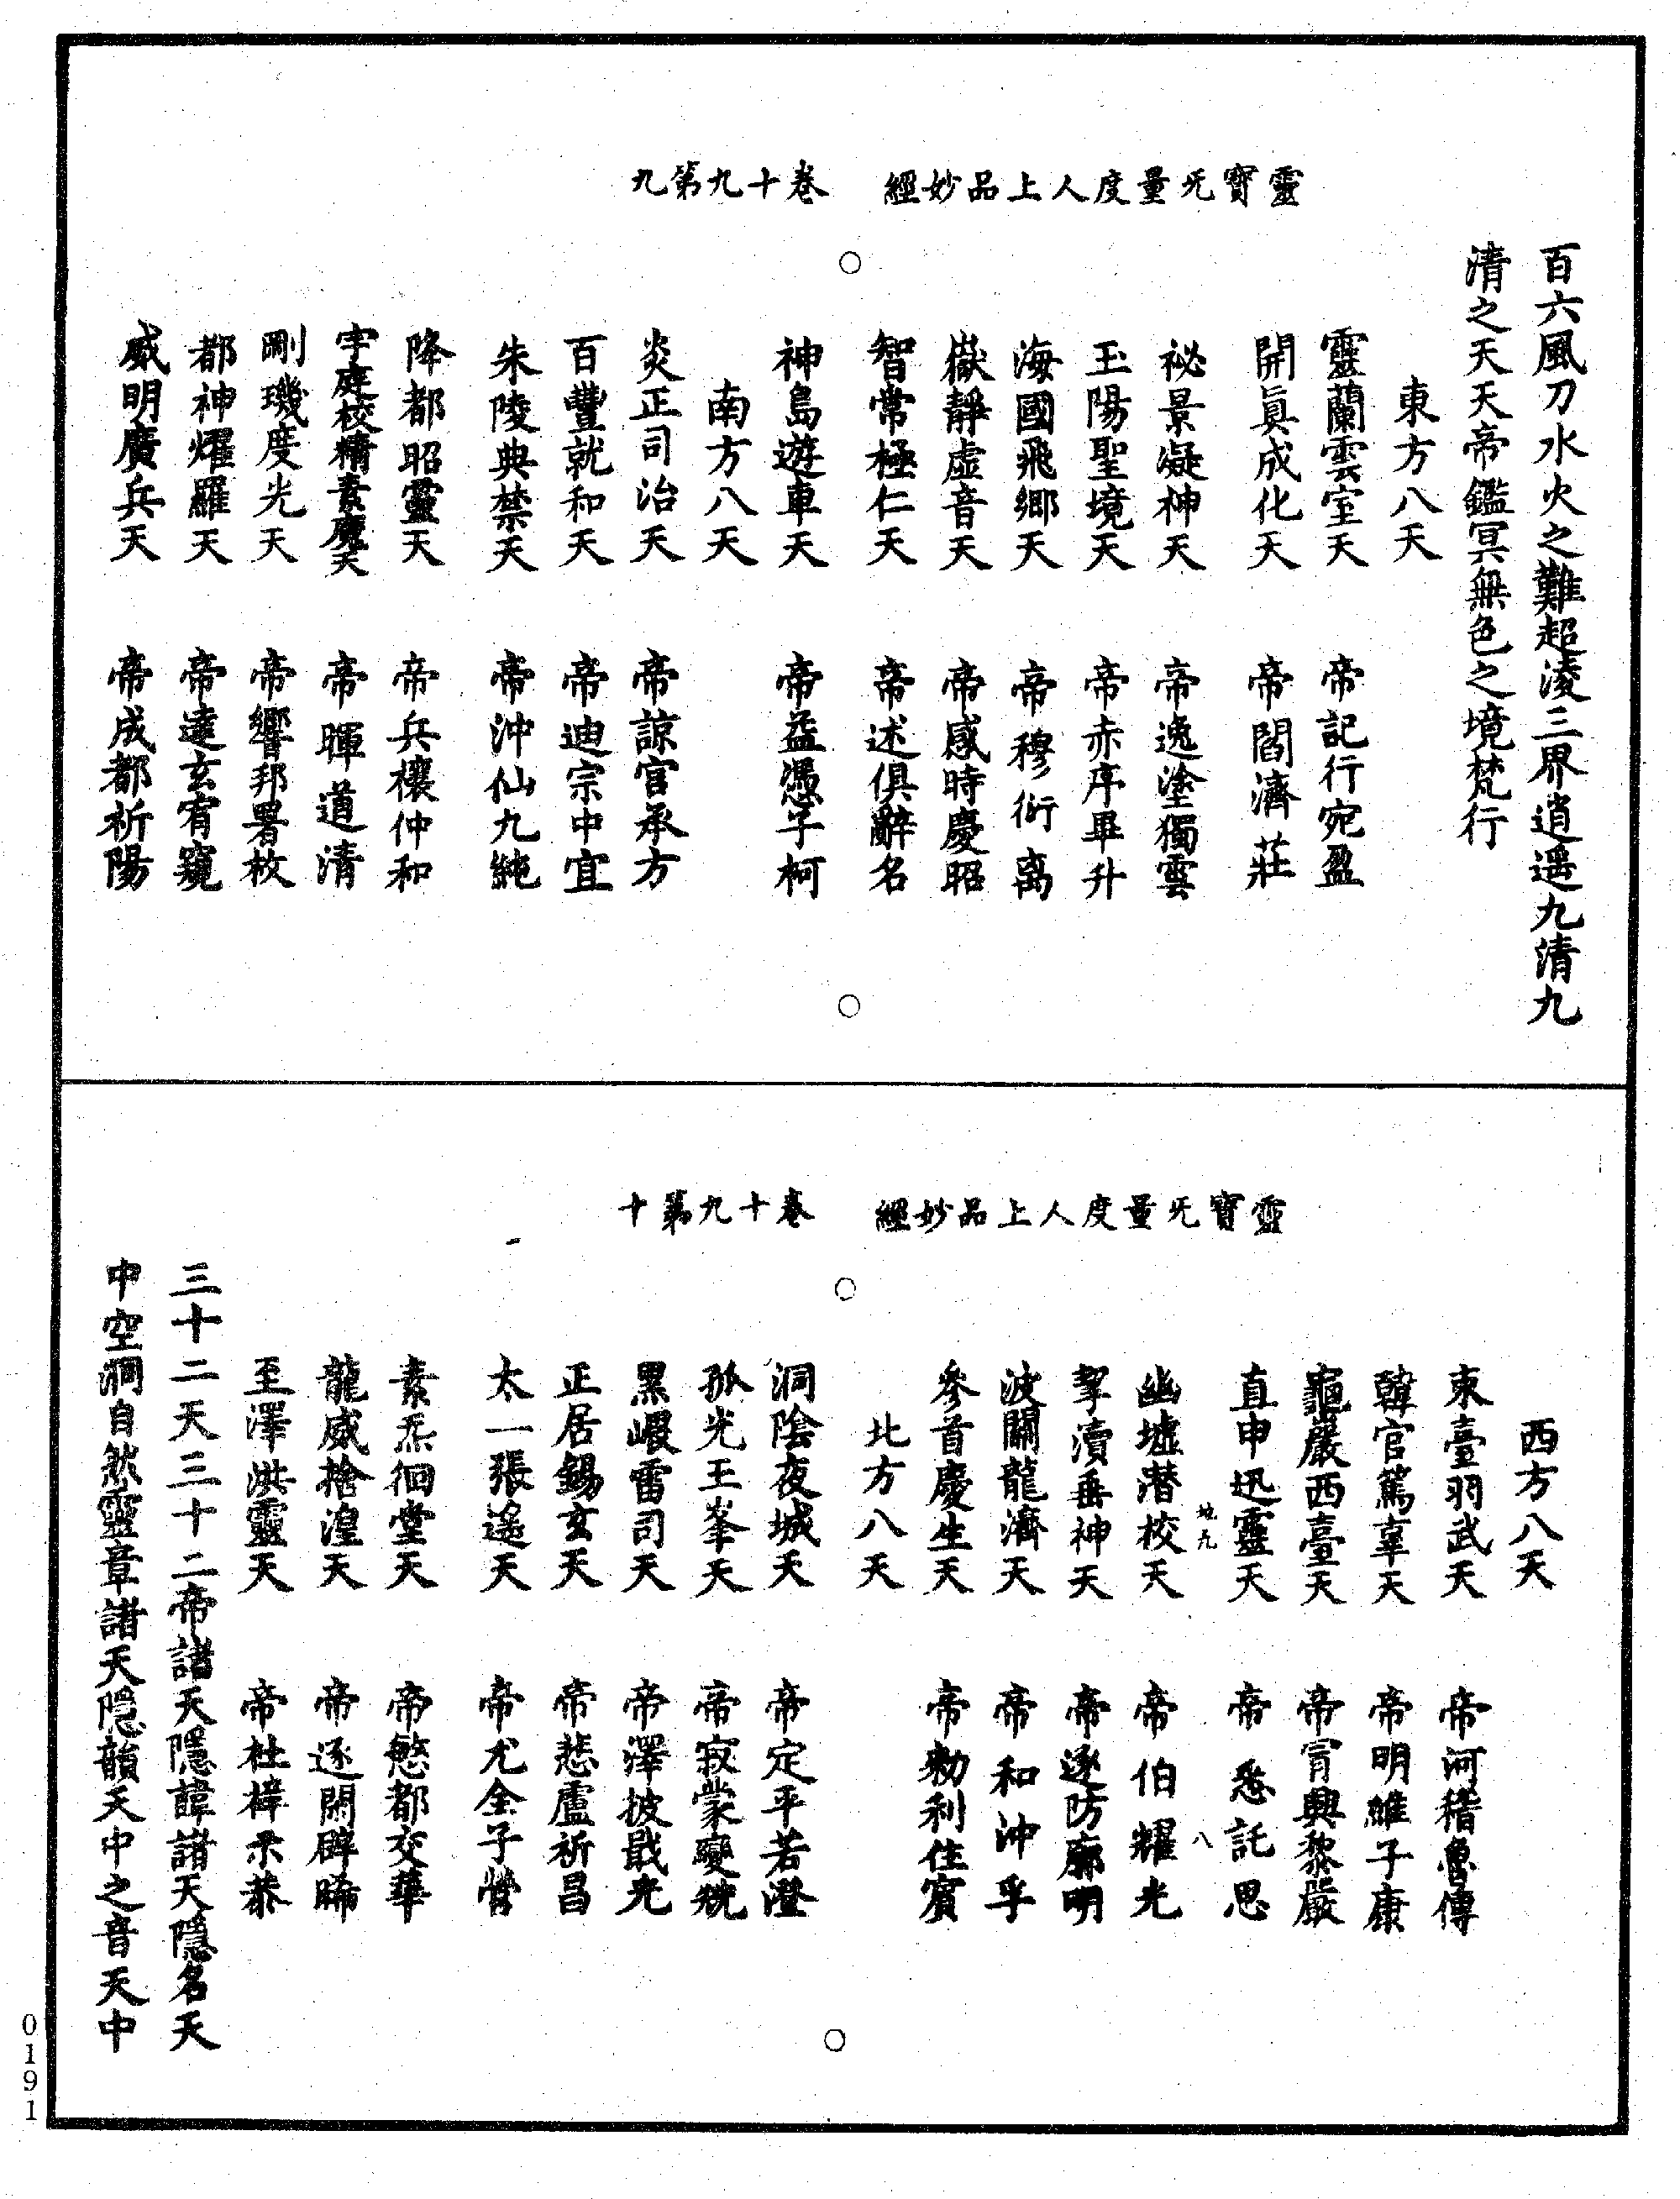 靈寶无量度人上品妙經　卷十九第九
百六風刀水火之難超淩三界逍遥九清九
清之天天帝鑑冥無色之境梵行
東方八天
靈蘭雲室天　帝記行宛盈
開眞成化天　帝閻濟莊
祕景凝神天　帝逸塗獨雲
玉陽聖境天　帝赤序畢升
海國飛鄉天　帝穆衍离
嶽靜虛音天　帝感時慶昭
智常極仁天　帝述俱辭名
神島遊車天　帝益憑子柯
南方八天
炎正司治天　帝諒官承方
百豐就和天　帝迪宗中宜
朱陵典禁天　帝沖仙九純
降都昭靈天　帝兵欀仲和
宇庭校精素魔天　帝暉道清
剛璣度光天　帝響邦署枚
都神燿羅天　帝達玄宥窺
威明廣兵天　帝成都祈陽
靈寶无量度人上品妙經　卷十九第十
西方八天
東臺羽武天　帝河稽魯傳
韓官篤辜天　帝明維子康
龜嚴西臺天　帝冐興黎嚴
直申迅靈天　帝悉託思
九　八
幽墟潜校天　帝伯耀光
挐瀆垂神天　帝逐防廓明
波關龍濟天　帝和沖孚
參首慶生天　帝勑利住賓
北方八天
洞陰夜城天　帝定平若澄
孤光王峯天　帝寂蒙變
黑㟏雷司天　帝澤披戢光
正居錫玄天　帝悲盧祈昌
太一張遙天　帝尤全子營
素炁徊堂天　帝慜都交華
龍威捨湟天　帝逐閑辟晞
至澤洪靈天　帝杜樟示恭
三十二天三十二帝諸天隱諱諸天隱名天
中空洞自然靈章諸天隱韻天中之音天中
0191